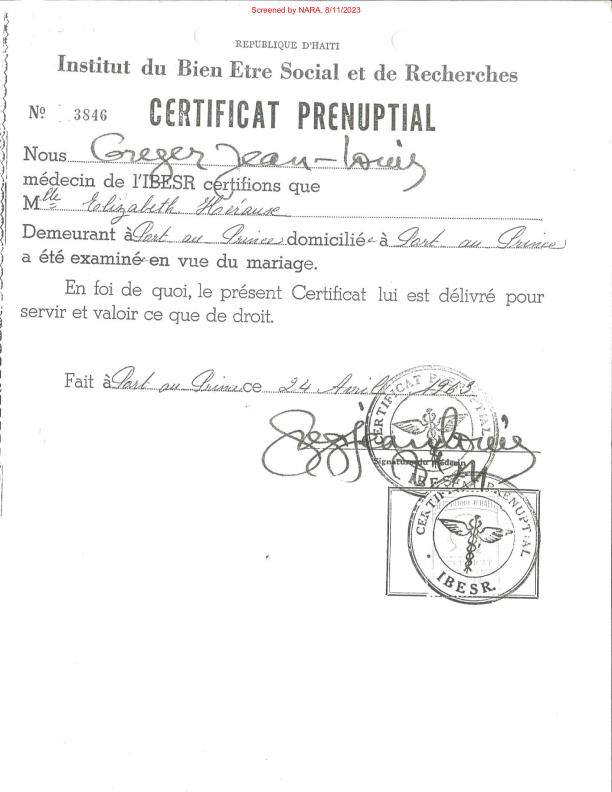 Screened by NARA, 8/11/2023
REPUBLIQUE D'HAITI
Institut du Bien Etre Social et de Recherches
Nº 3846 CERTIFICAT PRENUPTIAL
Nous Greger Jean-Louis
médecin de l'IBESR certifions que
Mlle Elizabeth
Demeurant à Port au Prince domiciliée à Port au Prince
a été examinée en vue du mariage.
En foi de quoi, le présent Certificat lui est délivré pour
servir et valoir ce que de droit.
Fait à Port au Prince ce 24 Avril 1963
CERTIFICAT PRENUPTIAL
Signature du Médecin
IBESR
CERTIFICAT PRENUPTIAL
IBESR.